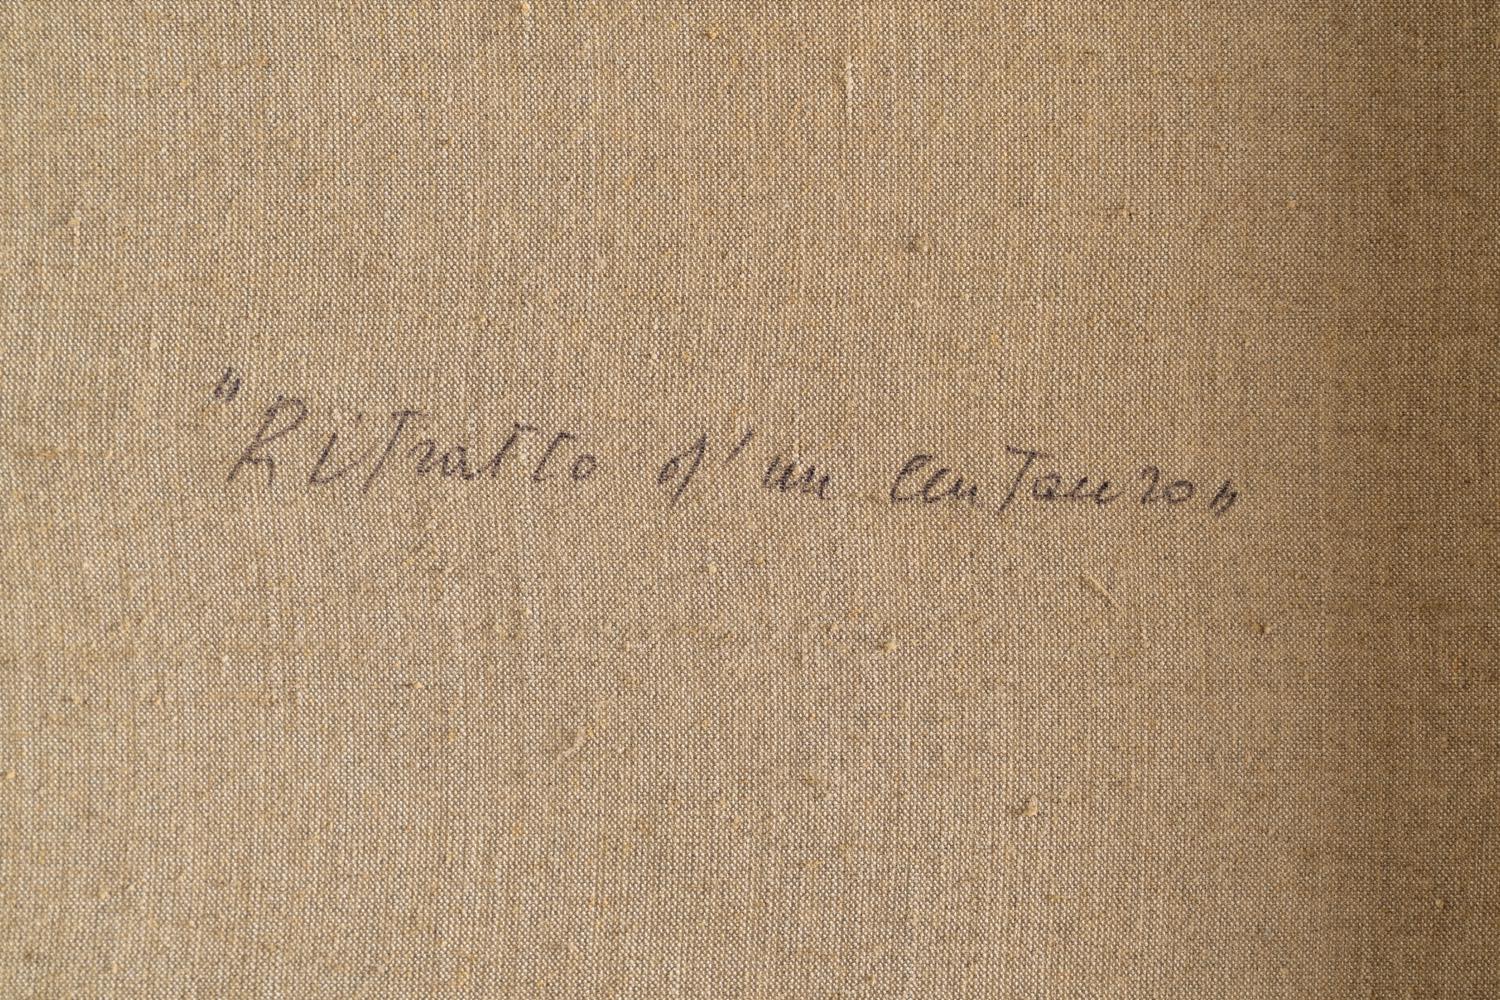 "Ritratto d'un centauro"